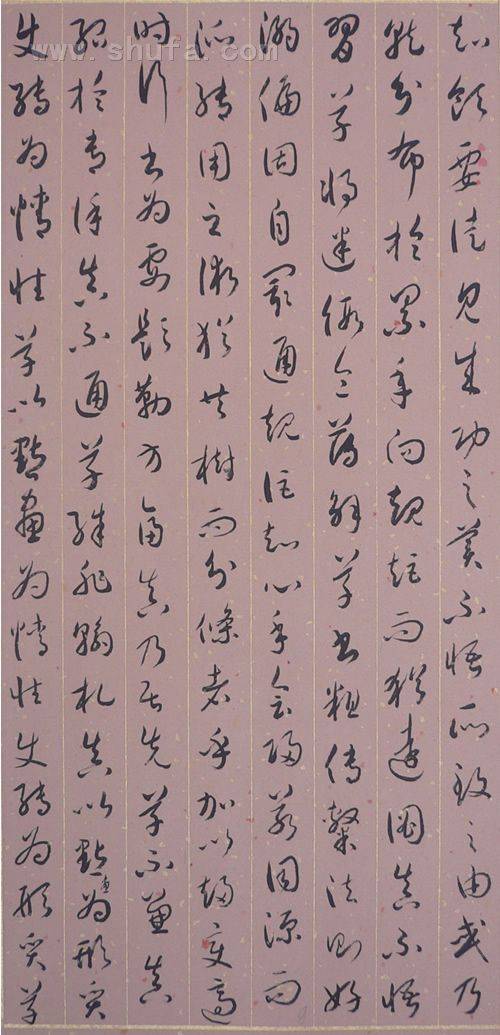 知領要徒見成功之美不悟所致之由或乃
就分布於累年向規矩而猶遠圖真不悟
習草將迷假令薄解草書粗傳隸法則好
溺偏固自閡通規詎知心手會歸若同源而
派轉用之術猶共樹而分條者乎加以趨變適
時行書為要題勒方畐真乃居先草不兼真
殆於專謹真不通草殊非翰札真以點畫為形質
使轉為情性草以點畫為情性使轉為形質草
www.shufa.com